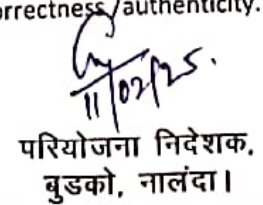 orrectness/authenticity.
11/02/25.
परियोजना निदेशक,
बुडको, नालंदा।